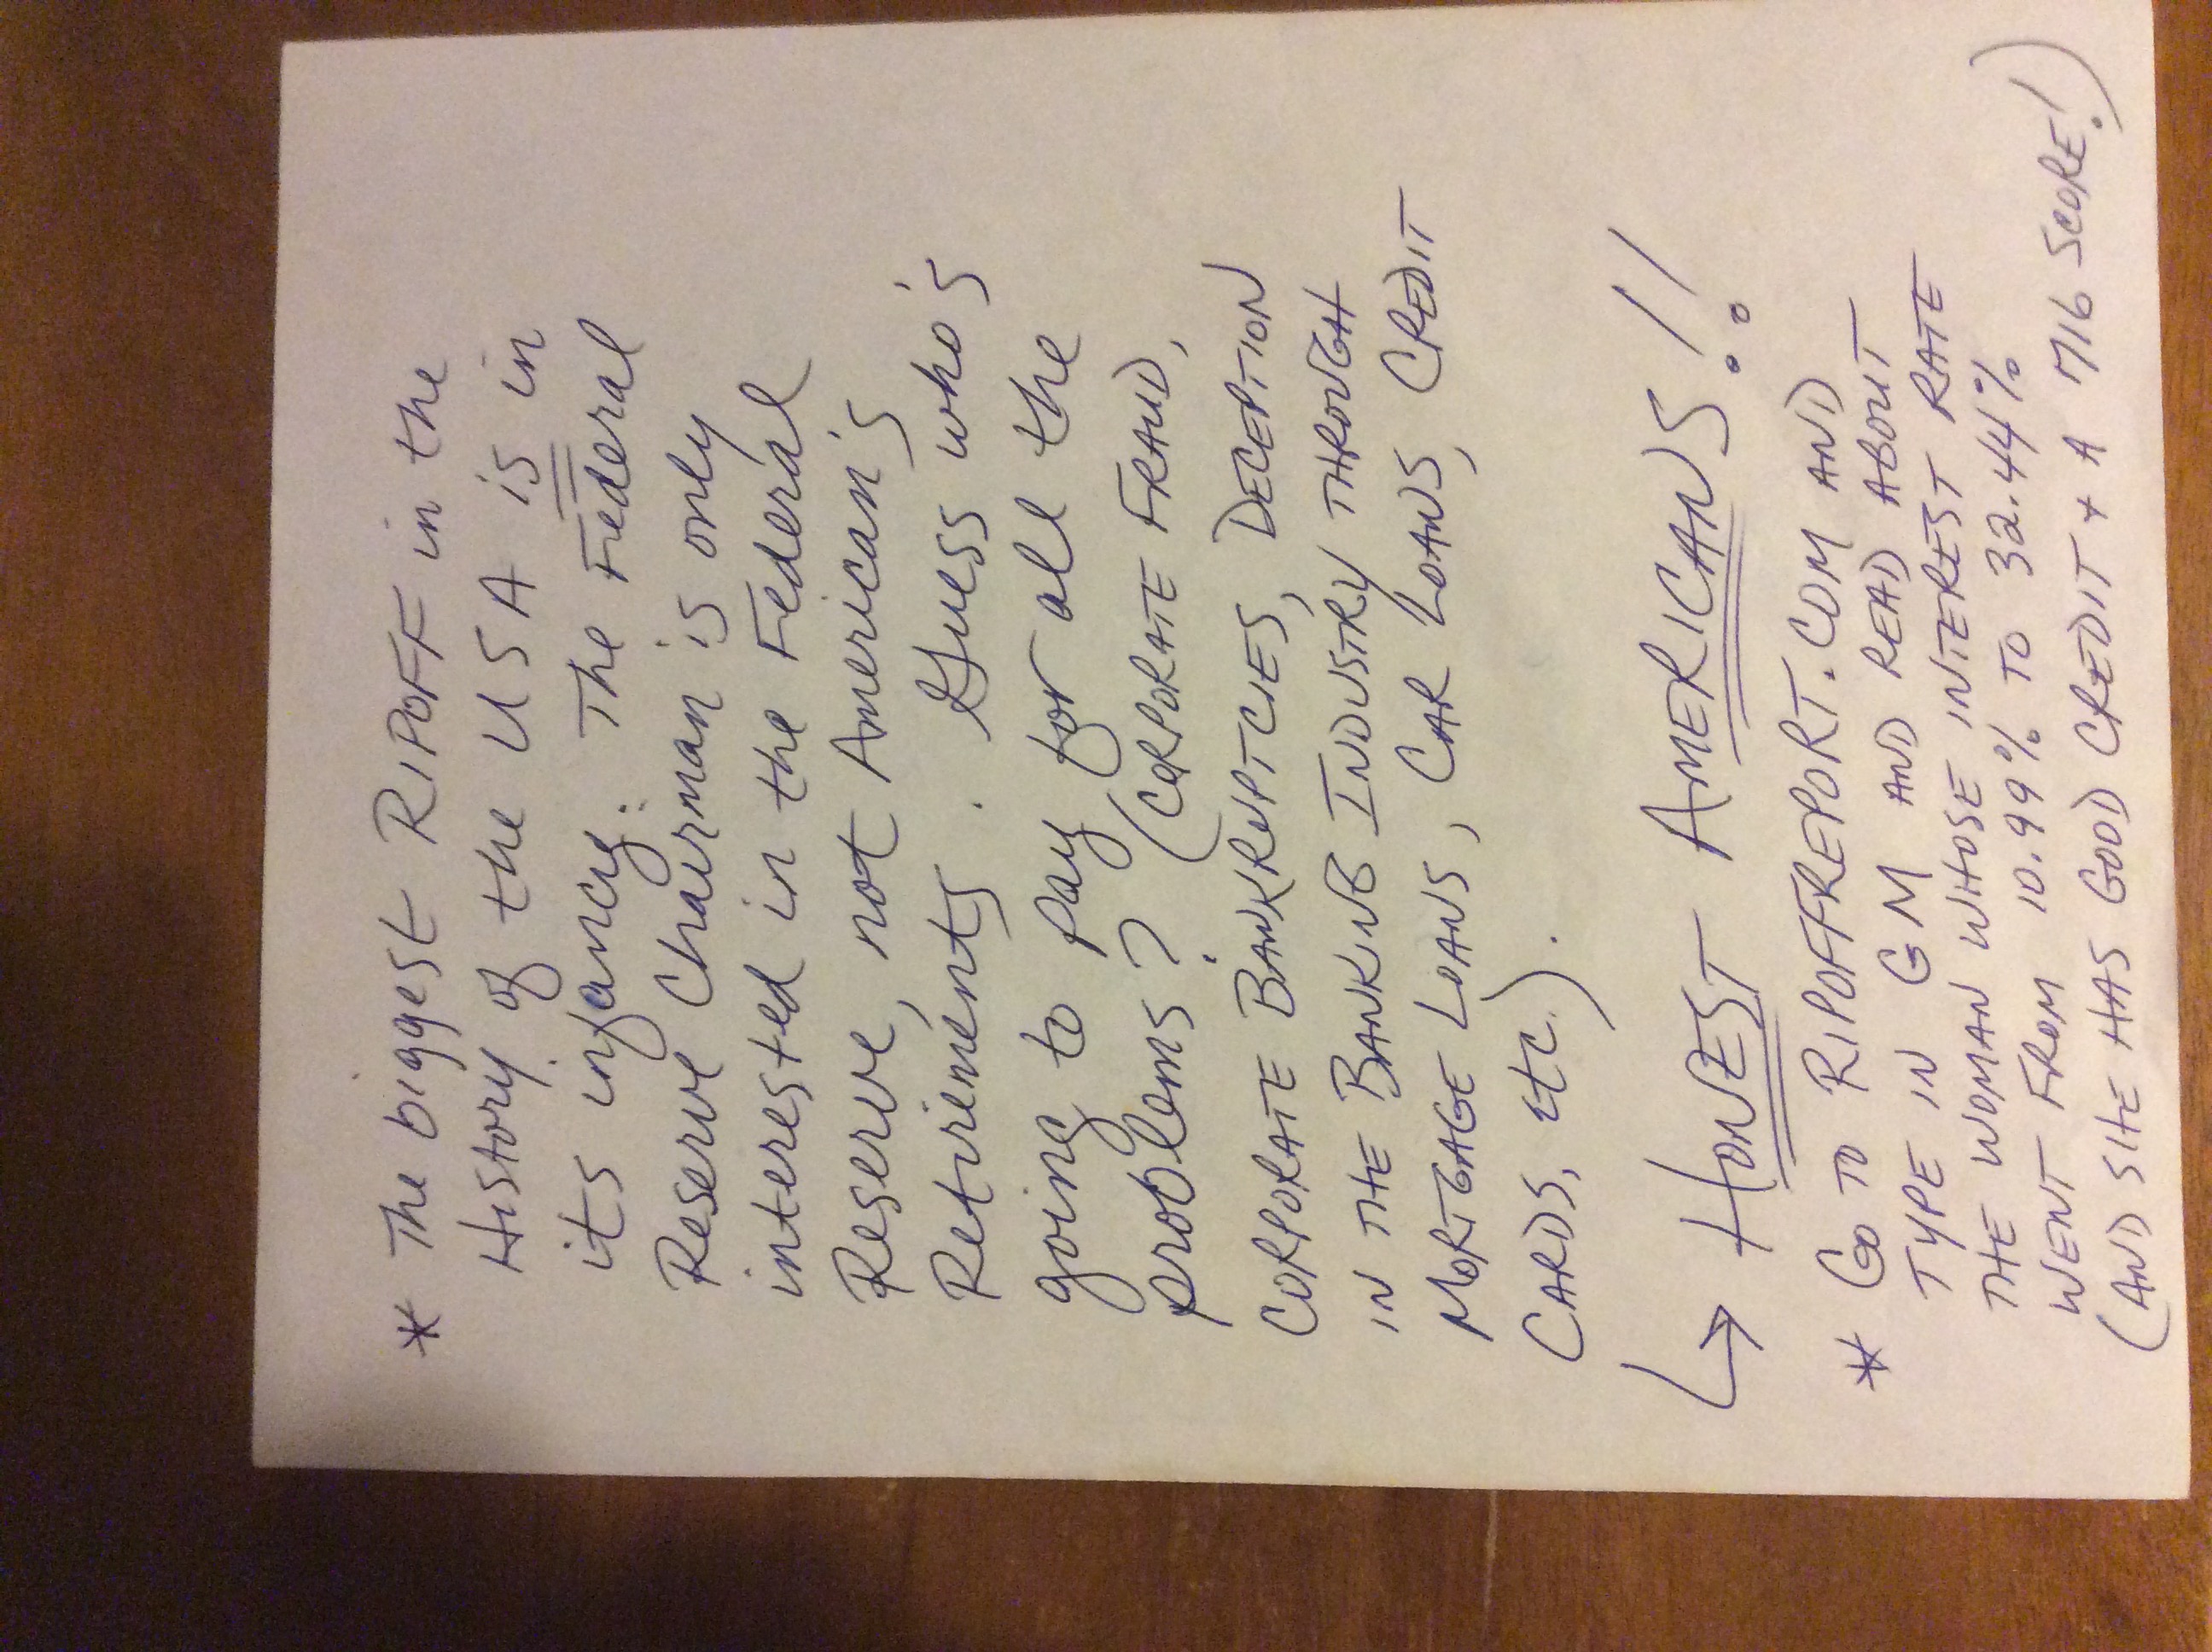 * The biggest RIPOFF in the
History of the USA is in
its infancy. The Federal
Reserve Chairman is only
interested in the Federal
Reserve, not American's
Retirements. Guess who's
going to pay for all the
problems? (CORPORATE FRAUD,
CORPORATE BANKRUPTCIES, DECEPTION
IN THE BANKING INDUSTRY THROUGH
MORTGAGE LOANS, CAR LOANS, CREDIT
CARDS, ETC.).
↳ HONEST AMERICANS!!
* GO TO RIPOFFREPORT.COM AND
TYPE IN GM AND READ ABOUT
THE WOMAN WHOSE INTEREST RATE
WENT FROM 10.99% TO 32.44%
(AND SHE HAS GOOD CREDIT + A 716 SCORE!)